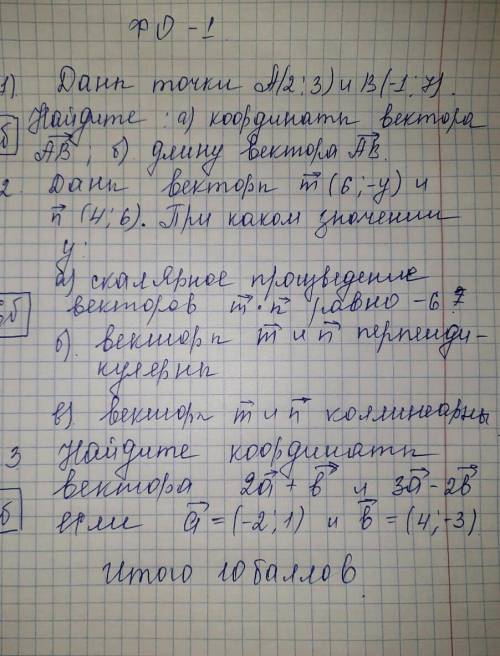 ФО -1
1). Даны точки А(2;3) и В(-1;7).
Найдите: а) координаты вектора
б
АВ, б) длину вектора АВ.
2. Даны векторы m (6;-у) и
n (4;6). При каком значении
у:
а) скалярное произведение
векторов m·n равно -6?
б
б). векторы m и n перпенди-
кулярны
в) векторы m и n коллинеарны
3 Найдите координаты
вектора 2а + b и 3а - 2b
б
если а = (-2;1) и b = (4;-3)
Итого 10 баллов